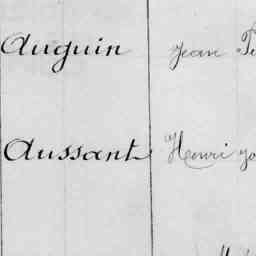 Auguin Jean
Aussant Henri